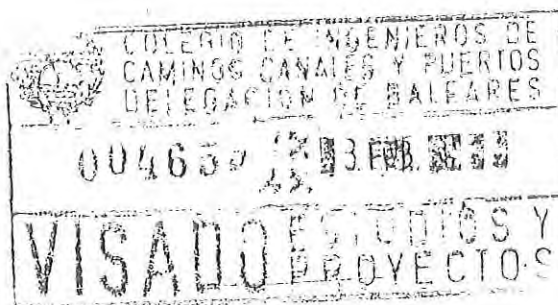 COLEGIO DE INGENIEROS DE
CAMINOS CANALES Y PUERTOS
DELEGACION DE BALEARES
FEB.
VISADO ESTUDIOS Y
PROYECTOS